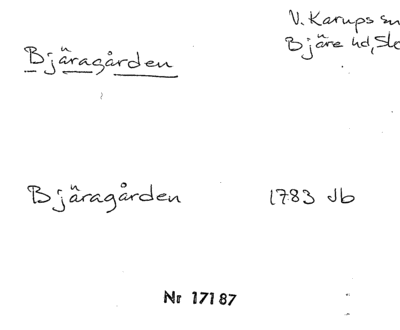 V. Karups sn
Bjäre hd, Sk
Bjäragården
Bjäragården 1783 Jb
Nr 17187